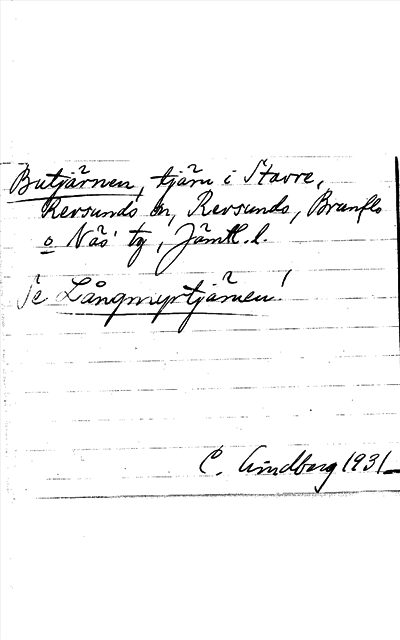 Butjärnen, tjärn i Stavre,
Revsunds sn, Revsunds, Brunflo
o Näs' tg, Jämtl. l.
Se Långmyrtjärnen!
C. Lindberg 1931